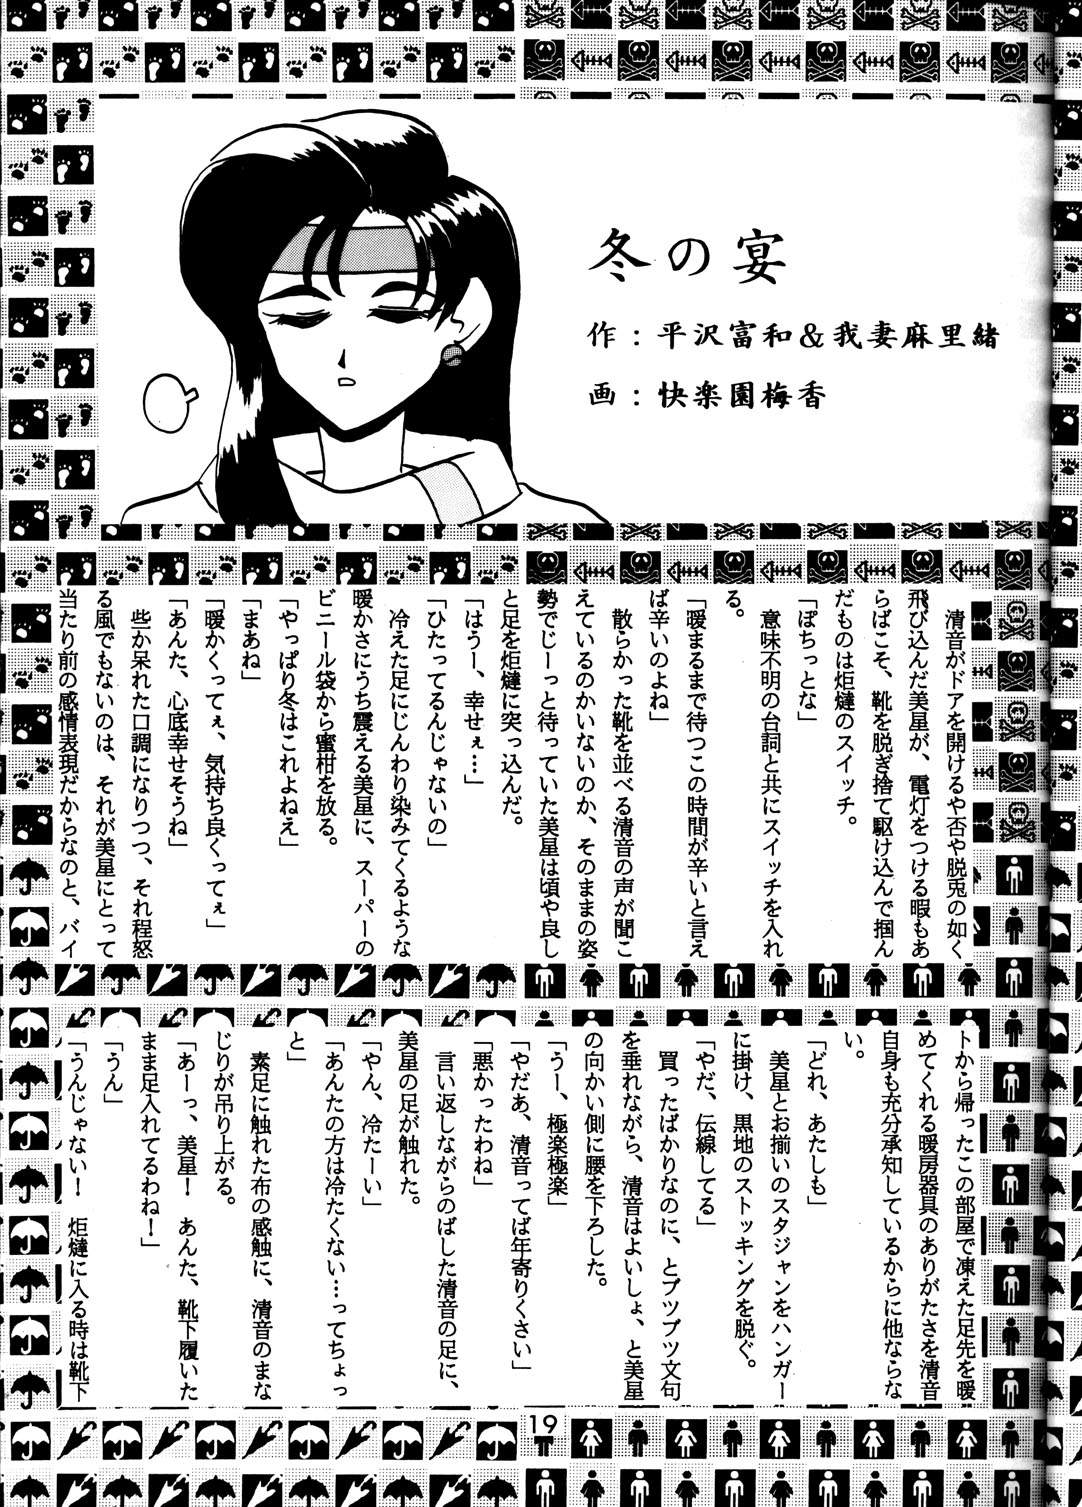 冬の宴
作：平沢富和＆我妻麻里緒
画：快楽園梅香
　清音がドアを開けるや否や脱兎の如く
飛び込んだ美星が、電灯をつける暇もあ
らばこそ、靴を脱ぎ捨て駆け込んで掴ん
だものは炬燵のスイッチ。
「ぽちっとな」
　意味不明の台詞と共にスイッチを入れ
る。
「暖まるまで待つこの時間が辛いと言え
ば辛いのよね」
　散らかった靴を並べる清音の声が聞こ
えているのかいないのか、そのままの姿
勢でじーっと待っていた美星は頃や良し
と足を炬燵に突っ込んだ。
「はうー、幸せぇ…」
「ひたってるんじゃないの」
　冷えた足にじんわり染みてくるような
暖かさにうち震える美星に、スーパーの
ビニール袋から蜜柑を放る。
「やっぱり冬はこれよねえ」
「まあね」
「暖かくってぇ、気持ち良くってぇ」
「あんた、心底幸せそうね」
　些か呆れた口調になりつつ、それ程怒
る風でもないのは、それが美星にとって
当たり前の感情表現だからなのと、バイ
トから帰ったこの部屋で凍えた足先を暖
めてくれる暖房器具のありがたさを清音
自身も充分承知しているからに他ならな
い。
「どれ、あたしも」
　美星とお揃いのスタジャンをハンガー
に掛け、黒地のストッキングを脱ぐ。
「やだ、伝線してる」
　買ったばかりなのに、とブツブツ文句
を垂れながら、清音はよいしょ、と美星
の向かい側に腰を下ろした。
「うー、極楽極楽」
「やだあ、清音ってば年寄りくさい」
「悪かったわね」
　言い返しながらのばした清音の足に、
美星の足が触れた。
「やん、冷たーい」
「あんたの方は冷たくない…ってちょっ
と」
　素足に触れた布の感触に、清音のまな
じりが吊り上がる。
「あーっ、美星！　あんた、靴下履いた
まま足入れてるわね！」
「うん」
「うんじゃない！　炬燵に入る時は靴下
19